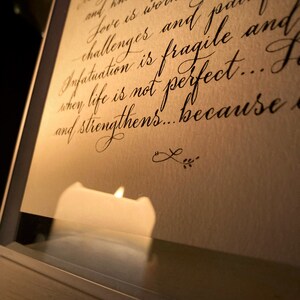 and kn
Love is wor
challenges and pai
Infatuation is fragile and
when life is not perfect... L
and strengthens... because